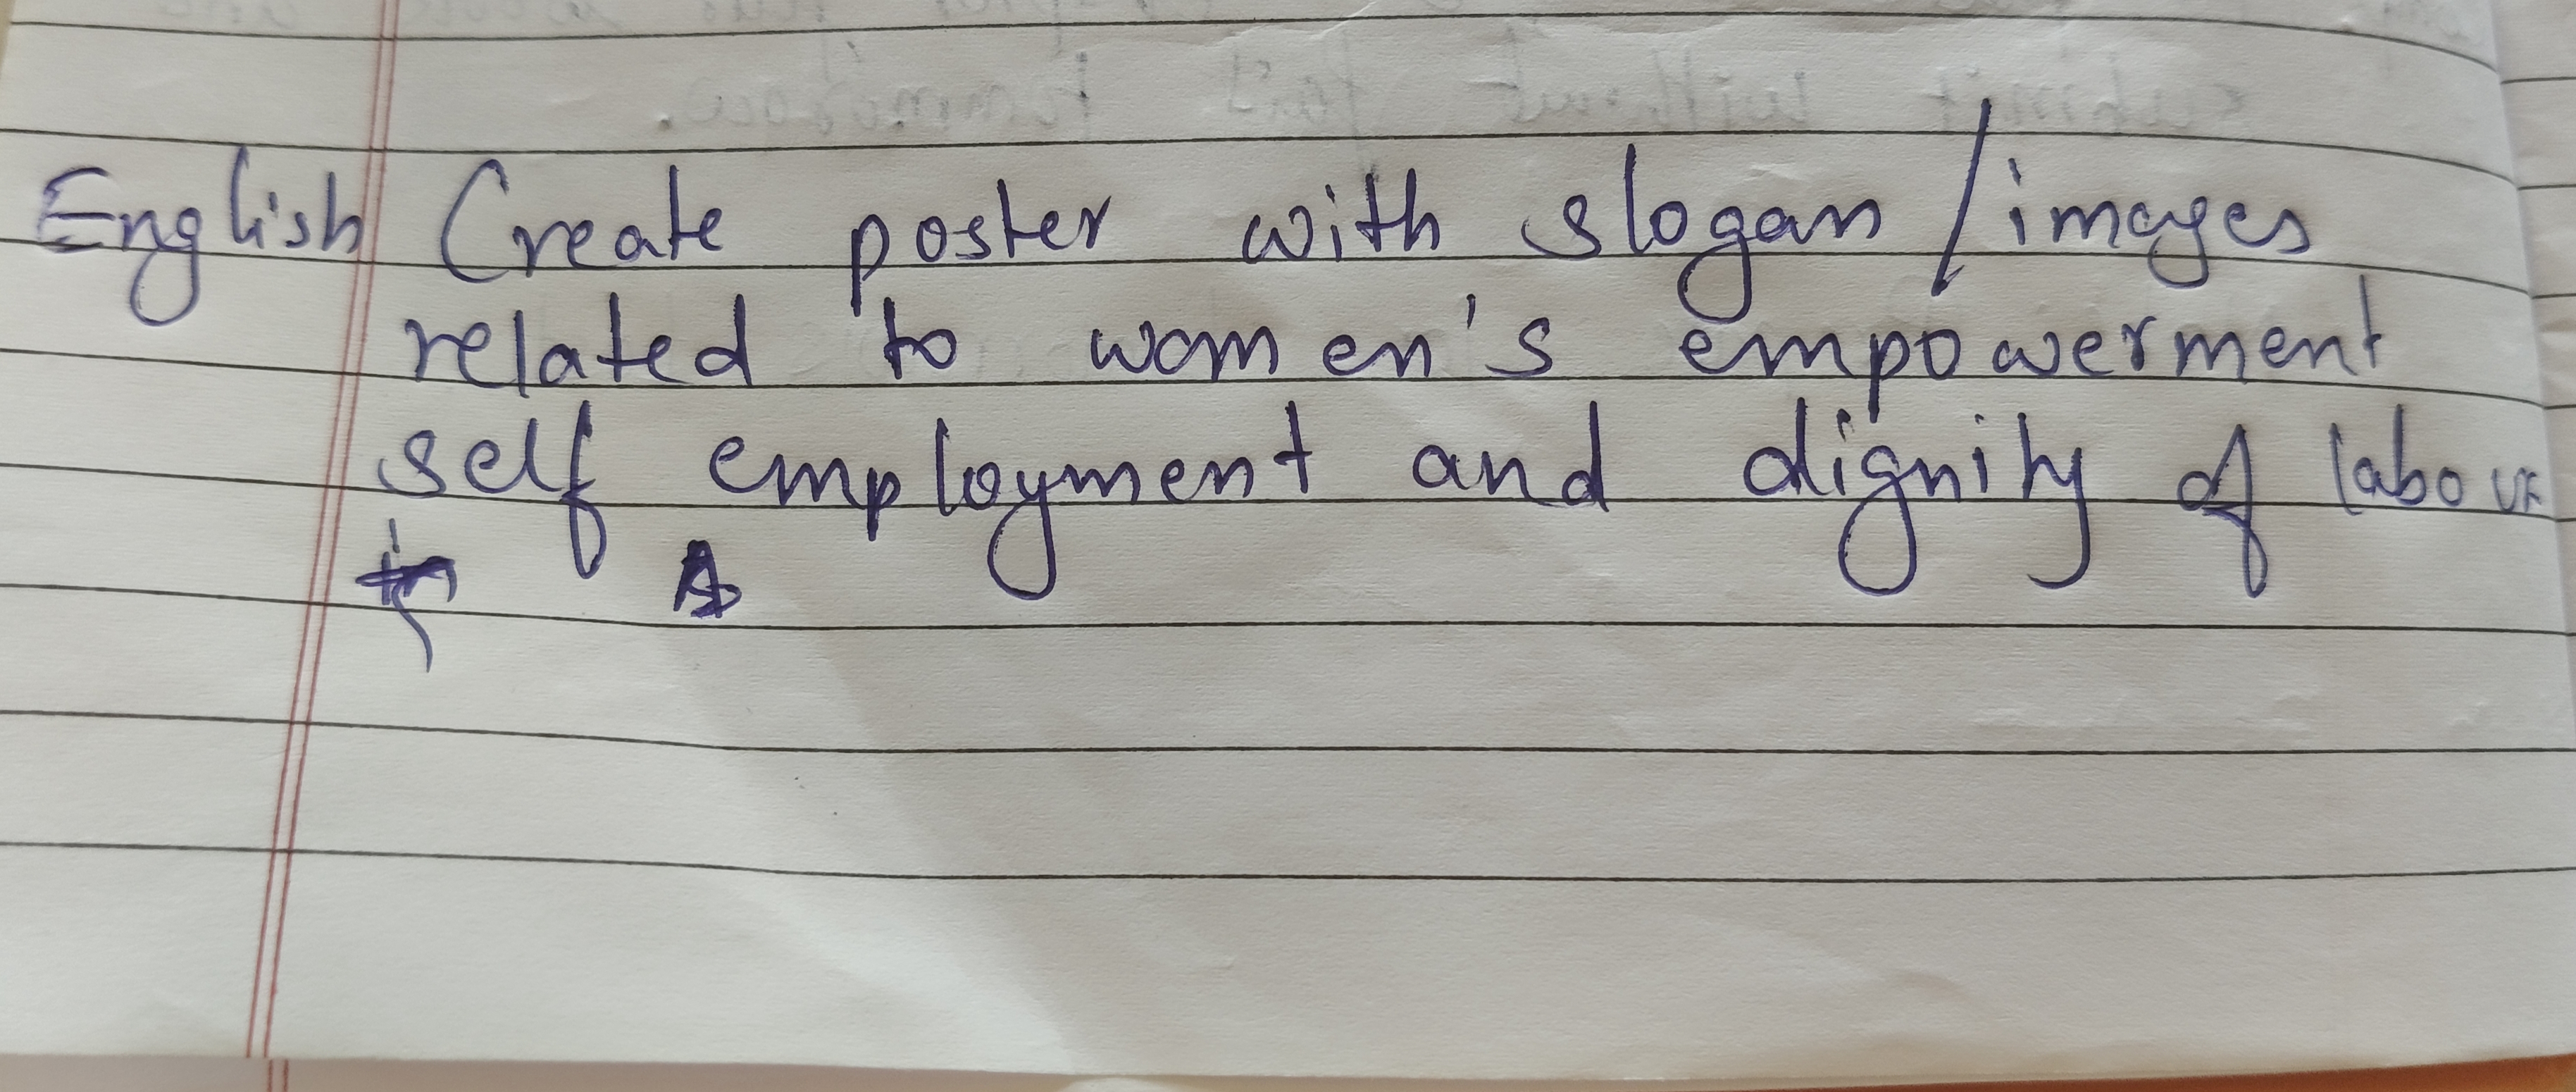 English Create poster with slogan / images
related to women's empowerment
self employment and dignity of labour
in A